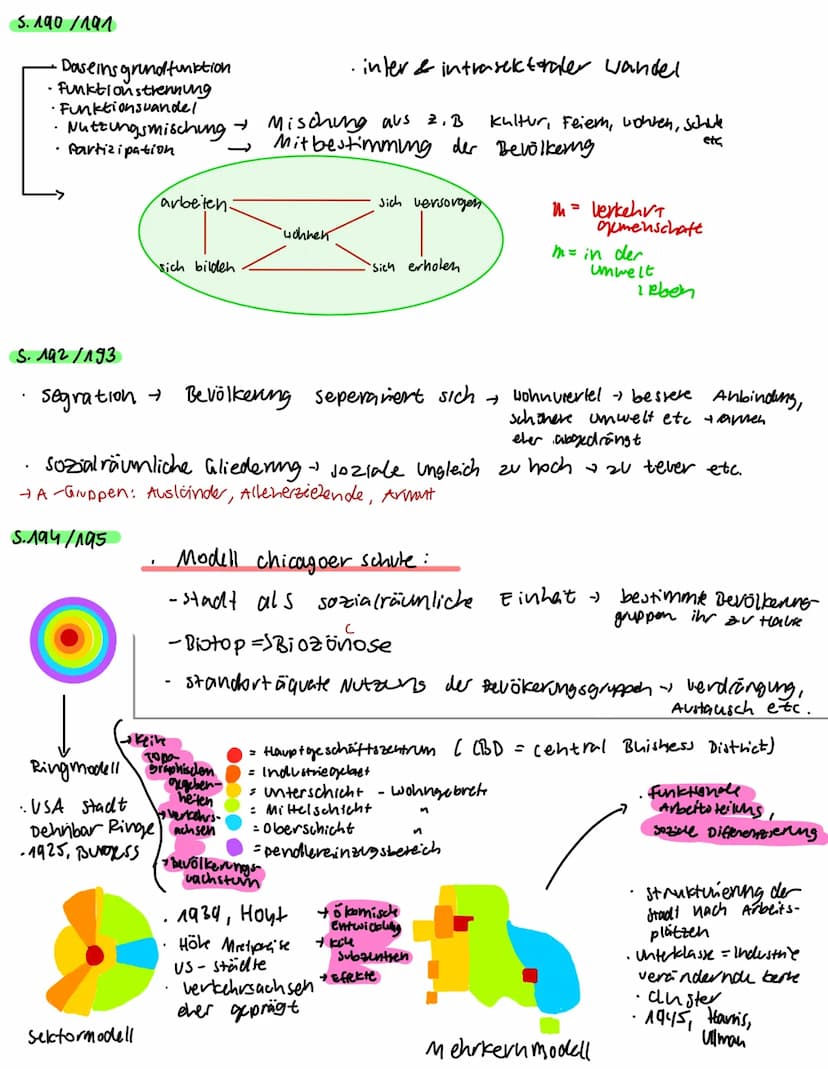 S. 190/191
Daseinsgrundfunktion
· inter & intrasektoraler Wandel
· Funktionstrennung
· Funktionswandel
· Nutzungsmischung → Mischung aus z.B Kultur, Feiern, wohnen, Schule etc
· Partizipation → Mitbestimmung der Bevölkerung
arbeiten
sich versorgen
wohnen
sich bilden
sich erholen
m = verkehrs
gemeinschaft
m = in der
umwelt
leben
S. 192/193
· segration → Bevölkerung seperariert sich → wohnviertel → bessere Anbindung,
schönere umwelt etc → armen
eher abgedrängt
· sozialräumliche Gliederung → soziale ungleich zu hoch → zu teuer etc.
→ A-Gruppen: Ausländer, Alleinerziehende, Armut
S.194/195
· Modell chicagoer schule:
- Stadt als sozialräumliche Einheit → bestimmte Bevölkerungs-
gruppen ihr zu Hause
c
- Biotop => Biozönose
- standortäquate Nutzung der Bevökerungsgruppen → verdrängung,
Austausch etc.
Ringmodell
· USA Stadt
Dehnbar Ringe
· 1925, Burgess
→ Keine
Topo-
graphischen
gegeben-
heiten
→ verkehrs-
achsen
→ bevölkerungs-
wachstum
= Hauptgeschäftszentrum ( CBD = central Buisness District)
= Industriegebiet
= unterschicht - wohngebiet
= Mittelschicht "
= Oberschicht "
= pendlereinzugsbereich
· Funktionale
Arbeitsteilung,
soziale Differenzierung
Sektormodell
· 1939, Hoyt
· Höhe Mietpreise
US-städte
· verkehrsachsen
eher geprägt
→ ökomische
entwicklung
→ keine
subzentren
→ Effekte
Mehrkernmodell
· strukturierung der
Stadt nach Arbeits-
plätzen
· unterklasse = Industrie
verändernde
· Cluster
· 1945, Harris,
Ullman